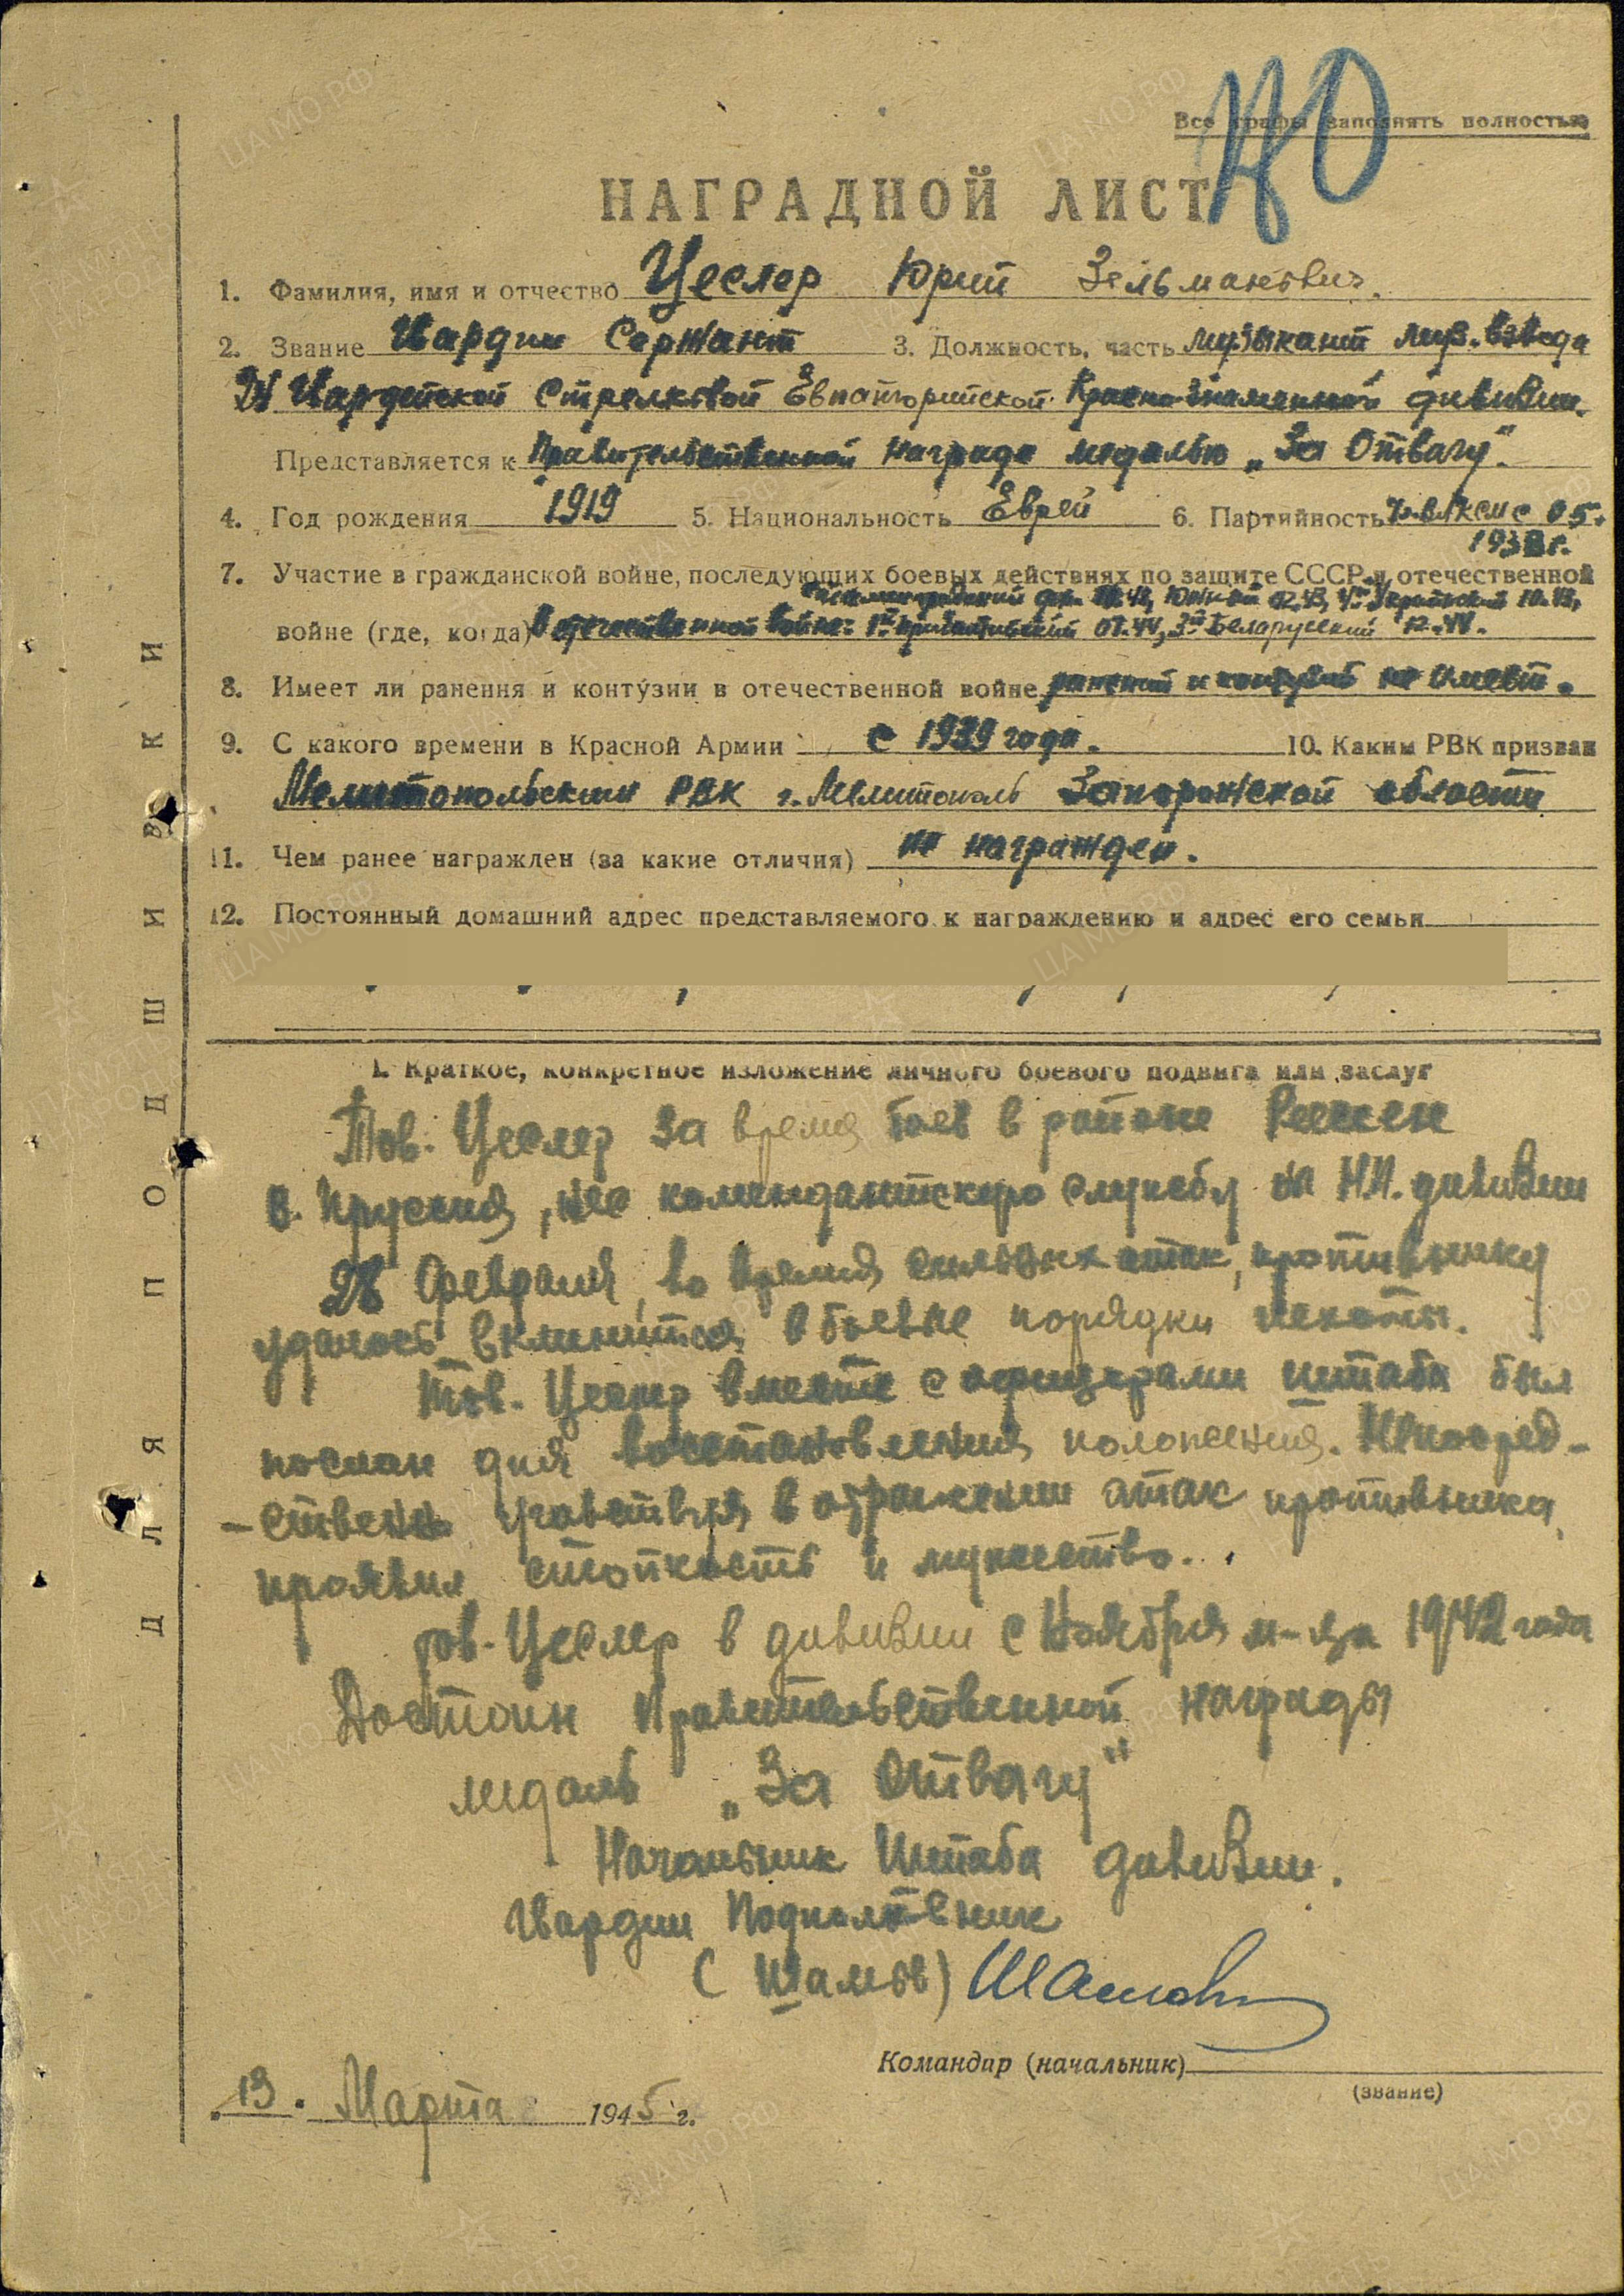 Все графы заполнять полностью
НАГРАДНОЙ ЛИСТ
1. Фамилия, имя и отчество Цеслер Юрий Зельманович.
2. Звание Гвардии Сержант 3. Должность, часть музыкант муз. взвода
24 Гвардейской Стрелковой Евпаторийской Краснознаменной дивизии.
Представляется к Правительственной награде медалью „За Отвагу".
4. Год рождения 1919 5. Национальность Еврей 6. Партийность Чл. ВЛКСМ с 05.
1938 г.
7. Участие в гражданской войне, последующих боевых действиях по защите СССР и отечественной
Сталинградский фр. 42, Южный 02.43, 4й Украинский 10.43,
войне (где, когда) В отечественной войне: 1й Прибалтийский 07.44, 3й Беларусский 12.44.
8. Имеет ли ранения и контузии в отечественной войне ранений и контузий не имеет.
9. С какого времени в Красной Армии с 1939 года. 10. Каким РВК призван
Мелитопольским РВК г. Мелитополь Запорожской области
11. Чем ранее награжден (за какие отличия) не награжден.
12. Постоянный домашний адрес представляемого к награждению и адрес его семьи
I. Краткое, конкретное изложение личного боевого подвига или заслуг
Тов. Цеслер за время боев в районе
В. Пруссия, нес комендантскую службу на Н.П. дивизии
28 Февраля, во время сильных атак, противнику
удалось вклинится в боевые порядки пехоты.
Тов. Цеслер вместе с офицерами штаба был
послан для восстановления положения. Непосред-
-ственно участвуя в отражении атак противника,
проявил стойкость и мужество.
тов. Цеслер в дивизии с Ноября м-ца 1942 года
Достоин Правительственной награды
медаль „За Отвагу"
Начальник Штаба дивизии.
Гвардии Подполковник
(Шамов) Шамов
Командир (начальник)
(звание)
13. Марта 1945 г.
ДЛЯ ПОДШИВКИ